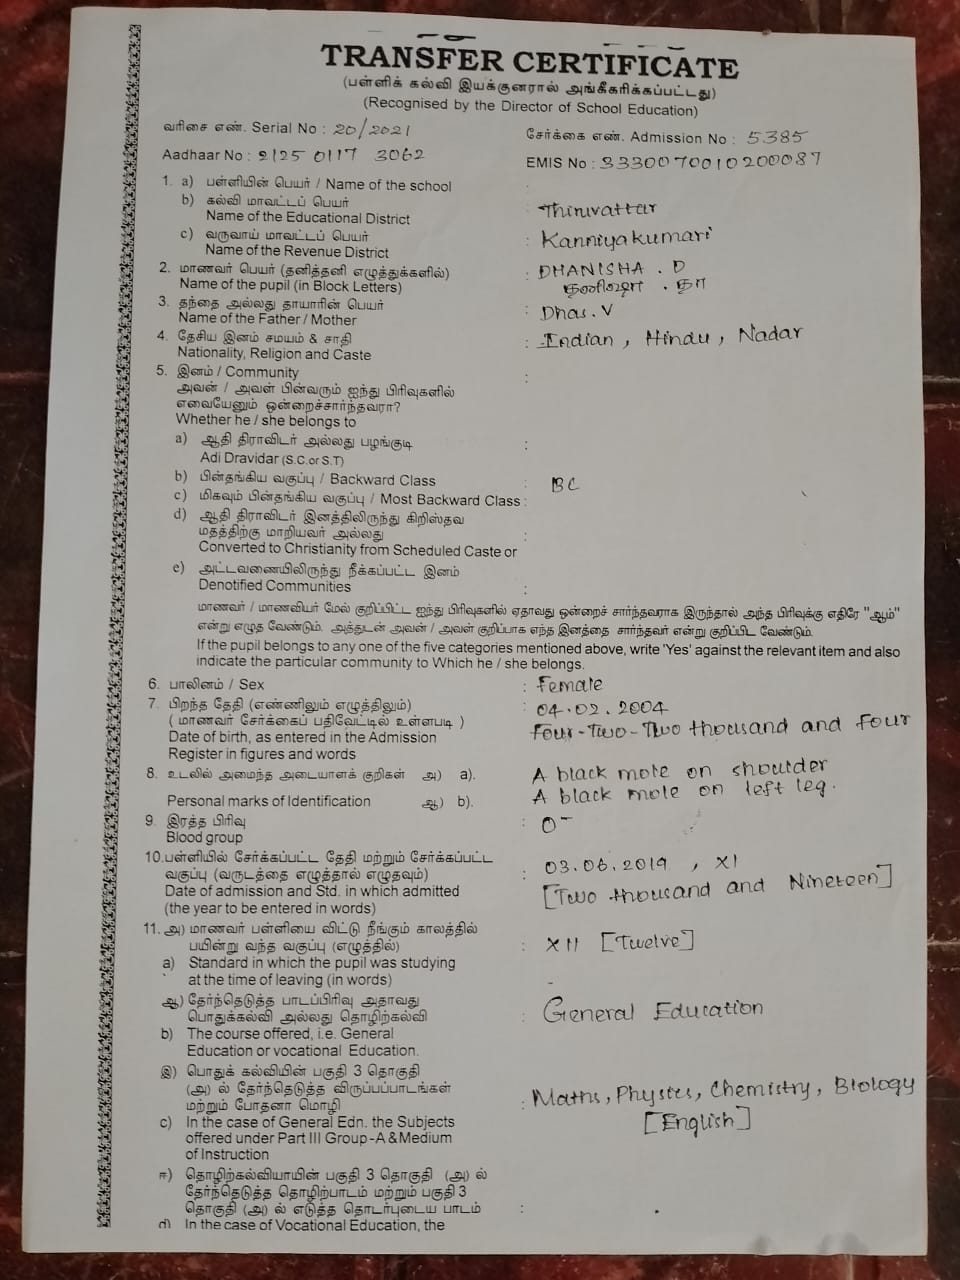 TRANSFER CERTIFICATE
(பள்ளிக் கல்வி இயக்குனரால் அங்கீகரிக்கப்பட்டது)
(Recognised by the Director of School Education)
வரிசை எண். Serial No : 20/2021
சேர்க்கை எண். Admission No : 5385
Aadhaar No : 2125 0117 3062
EMIS No : 3330070010200087
1. a) பள்ளியின் பெயர் / Name of the school :
b) கல்வி மாவட்டப் பெயர்
Name of the Educational District : Thiruvattar
c) வருவாய் மாவட்டப் பெயர்
Name of the Revenue District : Kanniyakumari
2. மாணவர் பெயர் (தனித்தனி எழுத்துக்களில்) : DHANISHA . D
Name of the pupil (in Block Letters) தனிஷா . தா
3. தந்தை அல்லது தாயாரின் பெயர்
Name of the Father / Mother : Dhas. V
4. தேசிய இனம் சமயம் & சாதி
Nationality, Religion and Caste : Indian , Hindu , Nadar
5. இனம் / Community :
அவன் / அவள் பின்வரும் ஐந்து பிரிவுகளில்
எவையேனும் ஒன்றைச்சார்ந்தவரா?
Whether he / she belongs to
a) ஆதி திராவிடர் அல்லது பழங்குடி :
Adi Dravidar (S.C.or S.T)
b) பின்தங்கிய வகுப்பு / Backward Class : BC
c) மிகவும் பின்தங்கிய வகுப்பு / Most Backward Class :
d) ஆதி திராவிடர் இனத்திலிருந்து கிறிஸ்தவ
மதத்திற்கு மாறியவர் அல்லது :
Converted to Christianity from Scheduled Caste or
e) அட்டவணையிலிருந்து நீக்கப்பட்ட இனம்
Denotified Communities :
மாணவர் / மாணவியர் மேல் குறிப்பிட்ட ஐந்து பிரிவுகளில் ஏதாவது ஒன்றைச் சார்ந்தவராக இருந்தால் அந்த பிரிவுக்கு எதிரே "ஆம்"
என்று எழுத வேண்டும். அத்துடன் அவன் / அவள் குறிப்பாக எந்த இனத்தை சார்ந்தவர் என்று குறிப்பிட வேண்டும்.
If the pupil belongs to any one of the five categories mentioned above, write 'Yes' against the relevant item and also
indicate the particular community to Which he / she belongs.
6. பாலினம் / Sex : Female
7. பிறந்த தேதி (எண்ணிலும் எழுத்திலும்) : 04.02.2004
( மாணவர் சேர்க்கைப் பதிவேட்டில் உள்ளபடி ) Four-Two-Two thousand and Four
Date of birth, as entered in the Admission
Register in figures and words
8. உடலில் அமைந்த அடையாளக் குறிகள் அ) a). A black mole on shoulder
Personal marks of Identification ஆ) b). A black mole on left leg.
9. இரத்த பிரிவு : O-
Blood group
10.பள்ளியில் சேர்க்கப்பட்ட தேதி மற்றும் சேர்க்கப்பட்ட
வகுப்பு (வருடத்தை எழுத்தால் எழுதவும்) : 03.06.2019 , XI
Date of admission and Std. in which admitted [Two thousand and Nineteen]
(the year to be entered in words)
11. அ) மாணவர் பள்ளியை விட்டு நீங்கும் காலத்தில்
பயின்று வந்த வகுப்பு (எழுத்தில்) : XII [Twelve]
a) Standard in which the pupil was studying
at the time of leaving (in words)
ஆ) தேர்ந்தெடுத்த பாடப்பிரிவு அதாவது
பொதுக்கல்வி அல்லது தொழிற்கல்வி : General Education
b) The course offered, i.e. General
Education or vocational Education.
இ) பொதுக் கல்வியின் பகுதி 3 தொகுதி
(அ) ல் தேர்ந்தெடுத்த விருப்பப்பாடங்கள்
மற்றும் போதனா மொழி : Maths, Physics, Chemistry, Biology
c) In the case of General Edn. the Subjects [English]
offered under Part III Group -A & Medium
of Instruction
ஈ) தொழிற்கல்வியாயின் பகுதி 3 தொகுதி (அ) ல்
தேர்ந்தெடுத்த தொழிற்பாடம் மற்றும் பகுதி 3
தொகுதி (அ) ல் எடுத்த தொடர்புடைய பாடம் :
d) In the case of Vocational Education, the